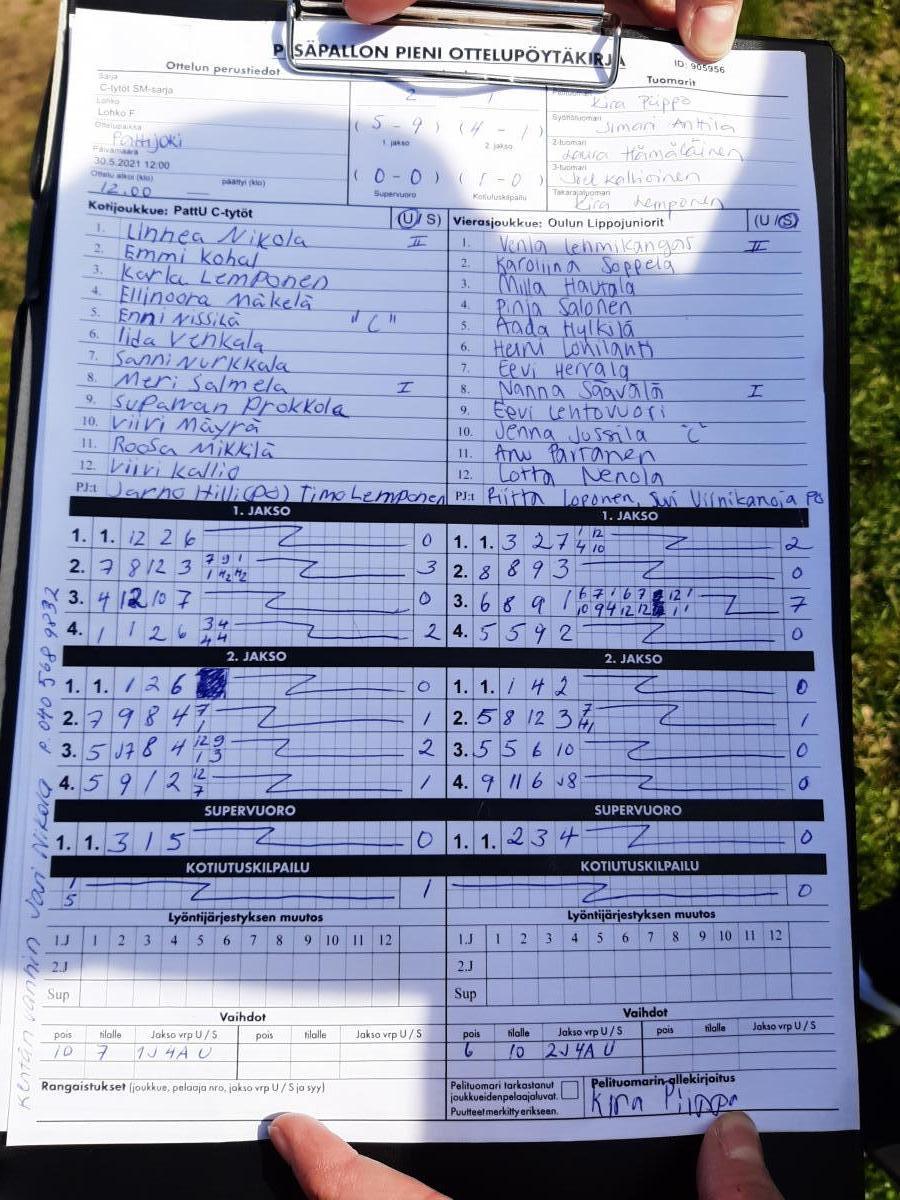 PESÄPALLON PIENI OTTELUPÖYTÄKIRJA
ID: 905956
Ottelun perustiedot
Tuomarit
Sarja
C-tytöt SM-sarja
Lohko
Lohko F
Ottelupaikka
Pattijoki
Päivämäärä
30.5.2021 12:00
Ottelu alkoi (klo) päättyi (klo)
12.00
2 - 1
(5-9) (4-1)
1. jakso 2. jakso
(0-0) (1-0)
Supervuoro Kotiutuskilpailu
Pelituomari
Kira Piippo
Syöttötuomari
Jimari Anttila
2-tuomari
Laura Hämäläinen
3-tuomari
Joel Kallioinen
Takarajatuomari
Kira Lemponen
Kotijoukkue: PattU C-tytöt (U / S)
1. Linnea Nikola II
2. Emmi Kohal
3. Karla Lemponen
4. Ellinoora Mäkelä
5. Enni Nissilä "C"
6. Iida Venkala
7. Sanni Nurkkala
8. Meri Salmela I
9. Suparran Prokkola
10. Viivi Mäyrä
11. Roosa Mikkilä
12. Viivi Kallio
PJ:t Jarno Hilli (po) Timo Lemponen
Vierasjoukkue: Oulun Lippojuniorit (U / S)
1. Venla Lehmikangas II
2. Karoliina Soppela
3. Milla Hautala
4. Pinja Salonen
5. Aada Hylkilä
6. Heini Lohilahti
7. Eevi Herrala
8. Nanna Säävälä I
9. Eevi Lehtovuori
10. Jenna Jussila "C"
11. Anu Partanen
12. Lotta Nenola
PJ:t Riitta Loponen, Suvi Viinikanoja PO
1. JAKSO
1. 1. 12 2 6 0
2. 7 8 12 3 7 9 1 3
3. 4 12 10 7 0
4. 1 1 2 6 3 4 4 4 2
1. JAKSO
1. 1. 3 2 7 1 12 4 10 2
2. 8 8 9 3 0
3. 6 8 9 1 6 7 1 6 7 12 1 10 9 4 12 12 1 1 7
4. 5 5 9 2 0
2. JAKSO
1. 1. 1 2 6 0
2. 7 9 8 4 7 1 1
3. 5 J7 8 4 12 9 1 3 2
4. 5 9 1 2 12 7 1
2. JAKSO
1. 1. 1 4 2 0
2. 5 8 12 3 7 1
3. 5 5 6 10 0
4. 9 11 6 J8 0
SUPERVUORO
1. 1. 3 1 5 0
SUPERVUORO
1. 1. 2 3 4 0
KOTIUTUSKILPAILU
1 5 1
KOTIUTUSKILPAILU
0
Lyöntijärjestyksen muutos
1.J 1 2 3 4 5 6 7 8 9 10 11 12
2.J
Sup
Lyöntijärjestyksen muutos
1.J 1 2 3 4 5 6 7 8 9 10 11 12
2.J
Sup
Vaihdot
pois tilalle Jakso vrp U / S pois tilalle Jakso vrp U / S
10 7 1J 4A U
Vaihdot
pois tilalle Jakso vrp U / S pois tilalle Jakso vrp U / S
6 10 2J 4A U
Rangaistukset (joukkue, pelaaja nro, jakso vrp U / S ja syy)
Pelituomari tarkastanut
joukkueiden pelaajaluvat.
Puutteet merkitty erikseen.
Pelituomarin allekirjoitus
Kira Piippo
Kentän vanhin Jari Nikola P. 040 568 9832